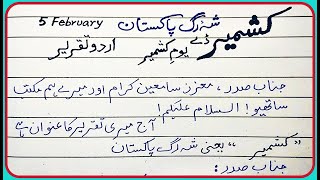 5 February
کشمیر شہ رگ پاکستان
ڈے یوم کشمیر اردو تقریر
جناب صدر، معزز سامعین کرام اور میرے ہم مکتب
ساتھیو! السلام علیکم!
آج میری تقریر کا عنوان ہے
"کشمیر" یعنی شہ رگ پاکستان
جناب صدر: